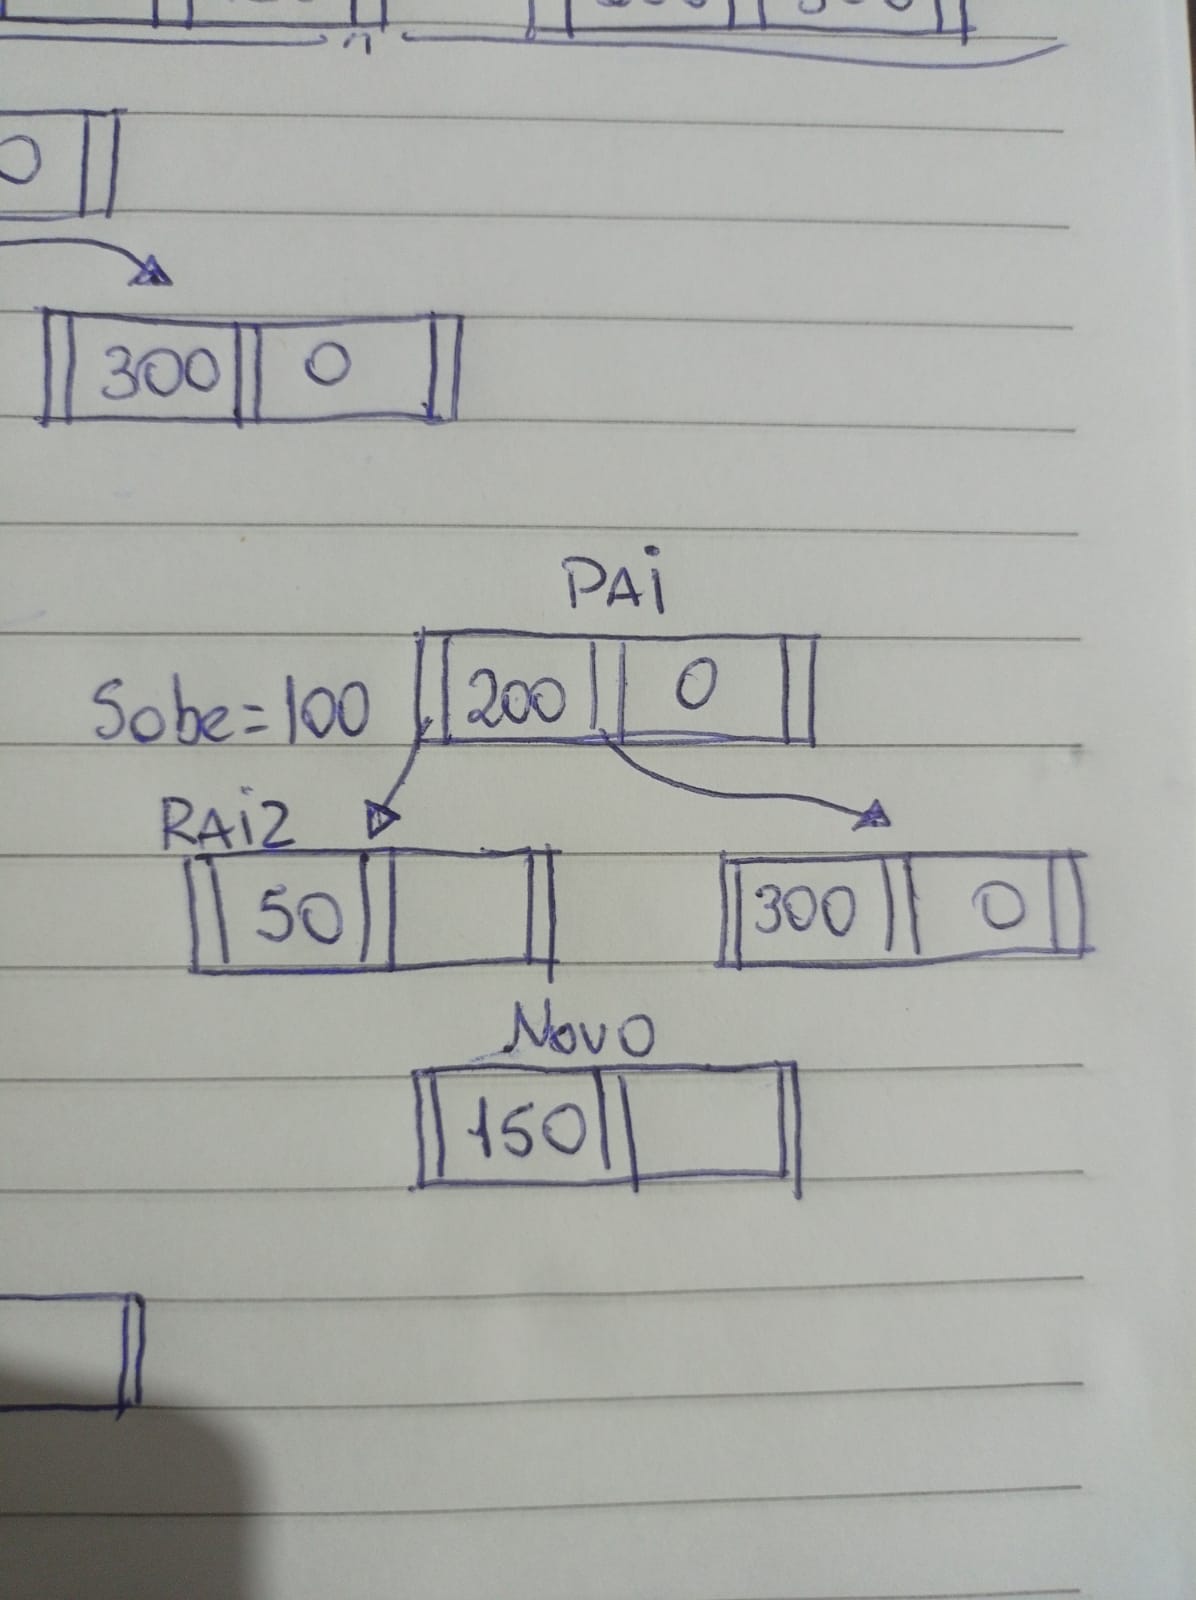 0
300 0
PAi
Sobe=100 200 0
RAiz
50 300 0
Novo
150